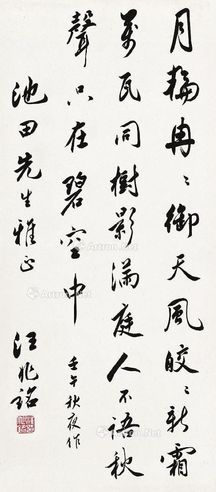 月輪冉〻御天風皎〻新霜
萬瓦同樹影滿庭人不語秋
聲只在碧空中 壬午秋夜作
池田先生雅正 汪兆銘